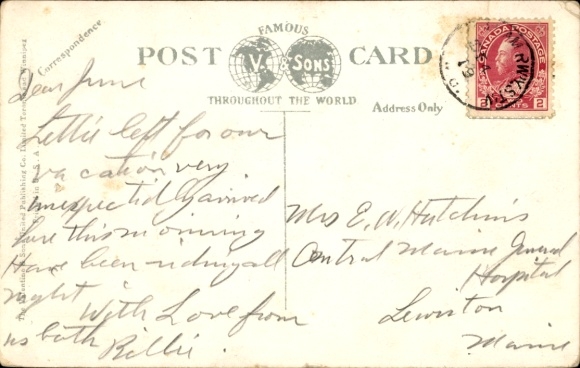 Correspondence.
FAMOUS
POST CARD
V. & SONS
THROUGHOUT THE WORLD
Address Only
CANADA POSTAGE
2 CENTS 2
Dear June
Lettie left for our
vacation very
unexpectidly arrived
here this morning
Have been riding all
night
With Love from
us both
Billie.
Mrs E. W. Hutchins
Central Maine General
Hospital
Lewiston
Maine